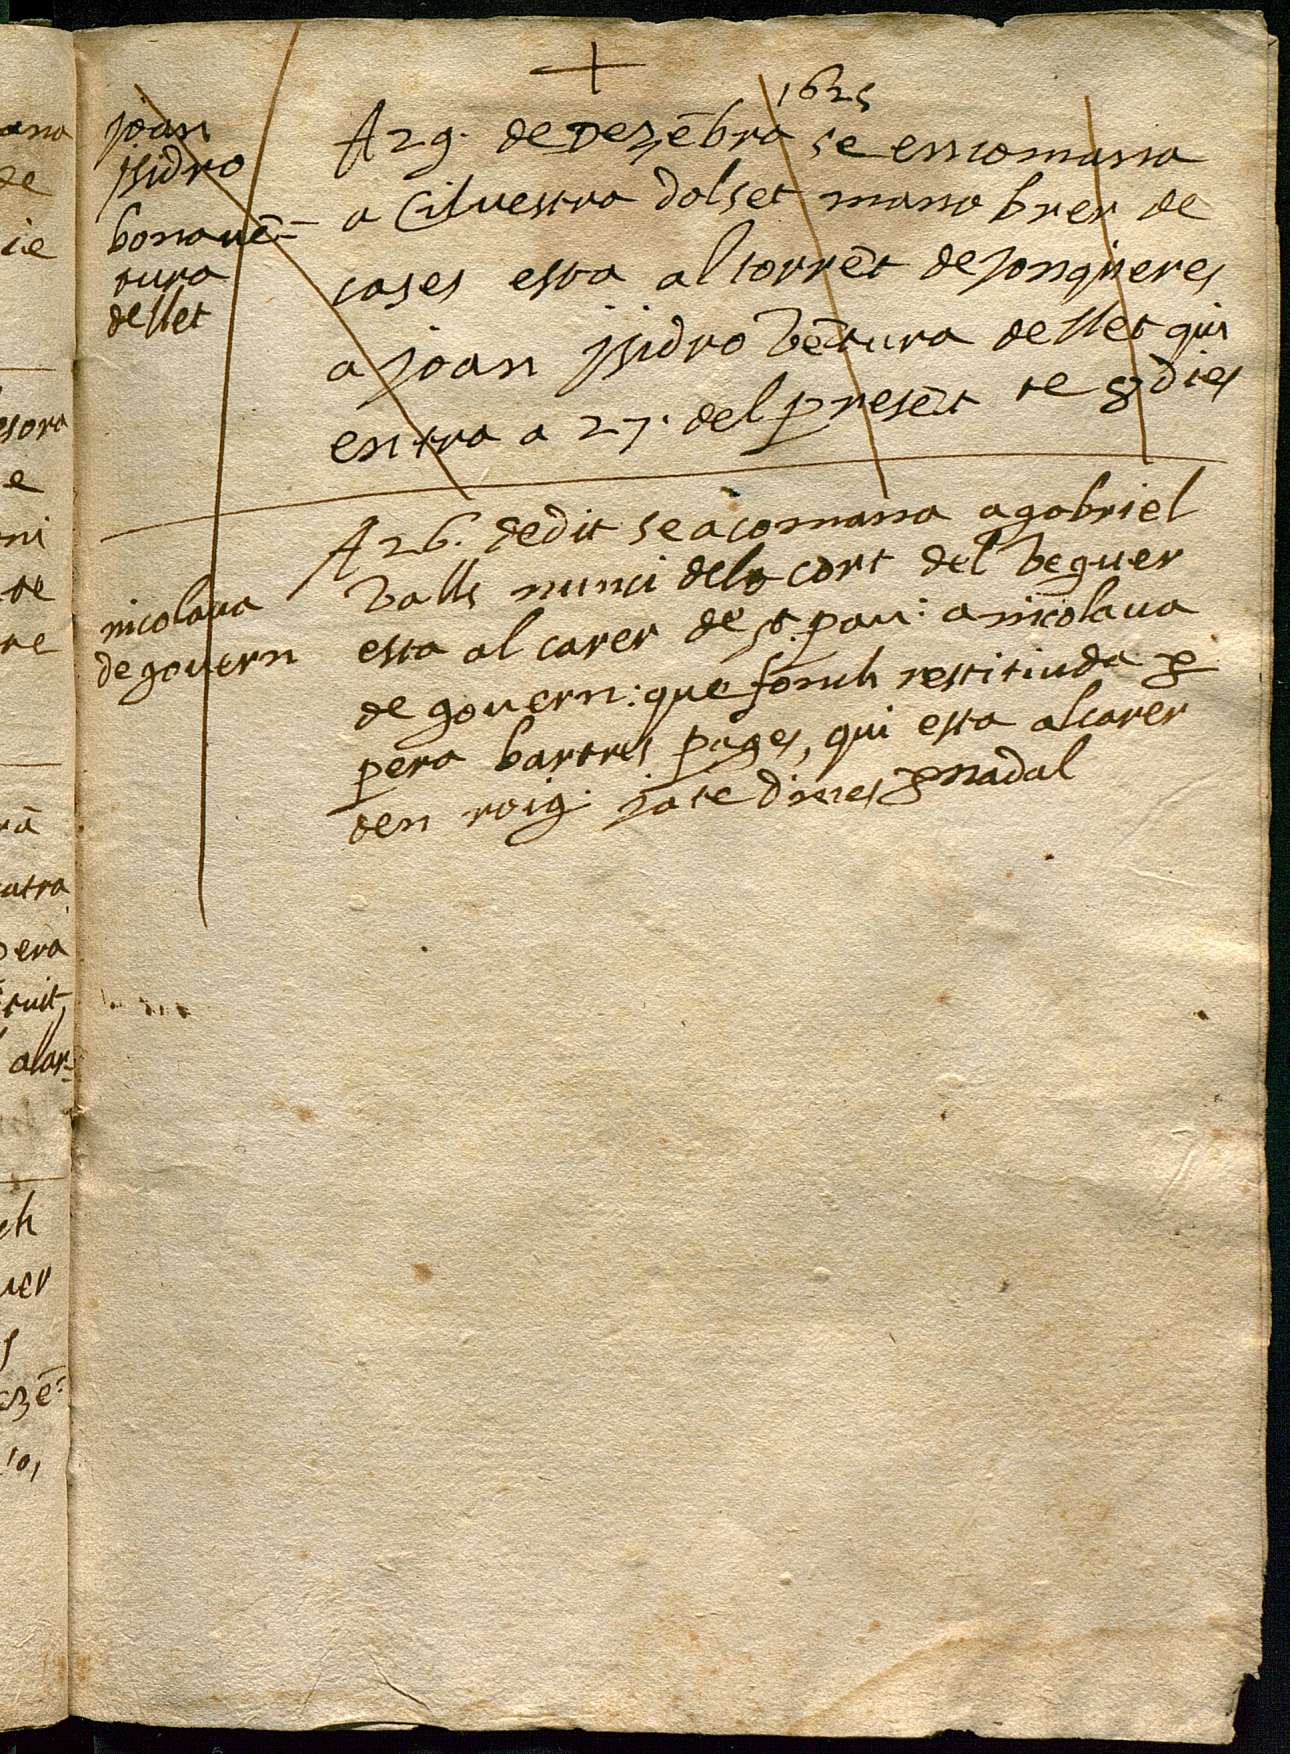 1625
joan
jsidro
bonauē=
tura
dellet
A 29. de Dezēbra se encomana
a Ciluestra dolset mano brer de
cases esta al torrēt de Jonqueres
a joan jsidro Vētura de llet qui
entra a 27. del presēt te 8 dies
nicolaua
de gouern
A 26. dedit se acomana a gabriel
Valls nunci dela cort del Veguer
esta al carer de st. pau: a nicolaua
de gouern: que fonch restituida p
pera bartres pages, qui esta al carer
den roig: ja te dines p nadal